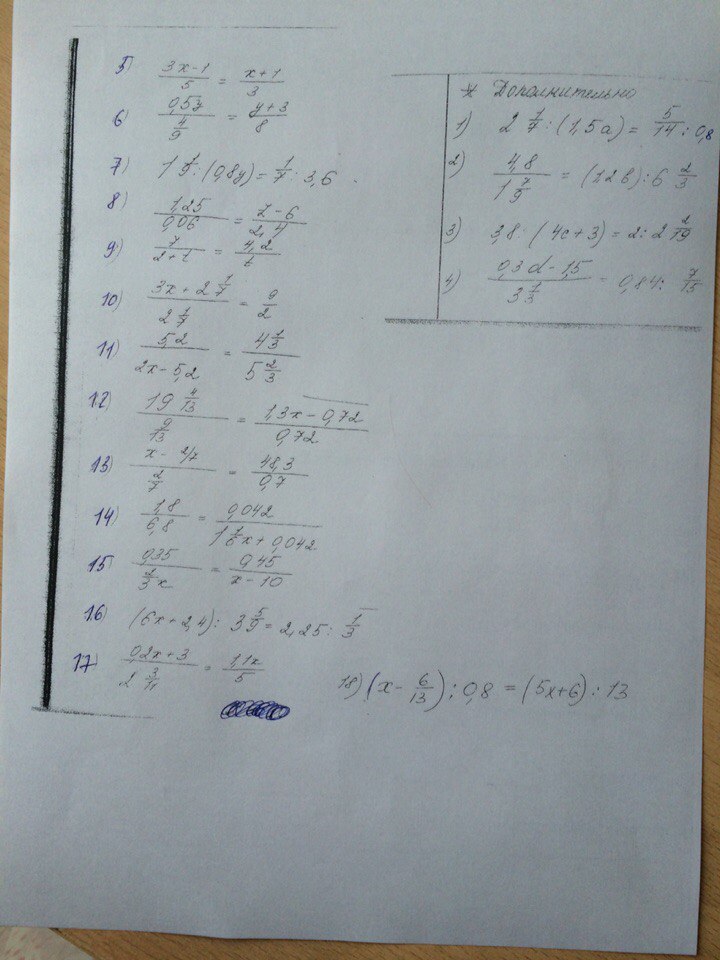 5) (3x-1)/5 = (x+1)/3
6) 0,5y/(4/9) = (y+3)/8
7) 1 1/9 : (0,8y) = 1/7 : 3,6
8) 1,25/0,06 = (z-6)/2,4
9) 7/(2+t) = 4,2/t
10) (3x+2 1/7)/(2 1/7) = 9/2
11) 5,2/(2x-5,2) = (4 1/3)/(5 2/3)
12) (19 4/13)/(9/13) = (1,3x-0,72)/0,72
13) (x-2/7)/(2/7) = 48,3/0,7
14) 1,8/6,8 = 0,042/(1 1/6x+0,042)
15) 0,35/(2/3x) = 0,45/(x-10)
16) (6x+2,4) : 3 5/9 = 2,25 : 1/3
17) (0,2x+3)/(2 3/11) = 1,1x/5
18) (x-6/13) : 0,8 = (5x+6) : 13
* Дополнительно
1) 2 1/7 : (1,5a) = 5/14 : 0,8
2) 4,8/(1 7/9) = (1,2b) : 6 2/3
3) 3,8 : (4c+3) = 2 : 2 2/19
4) (0,3d-1,5)/(3 1/3) = 0,84 : 7/15